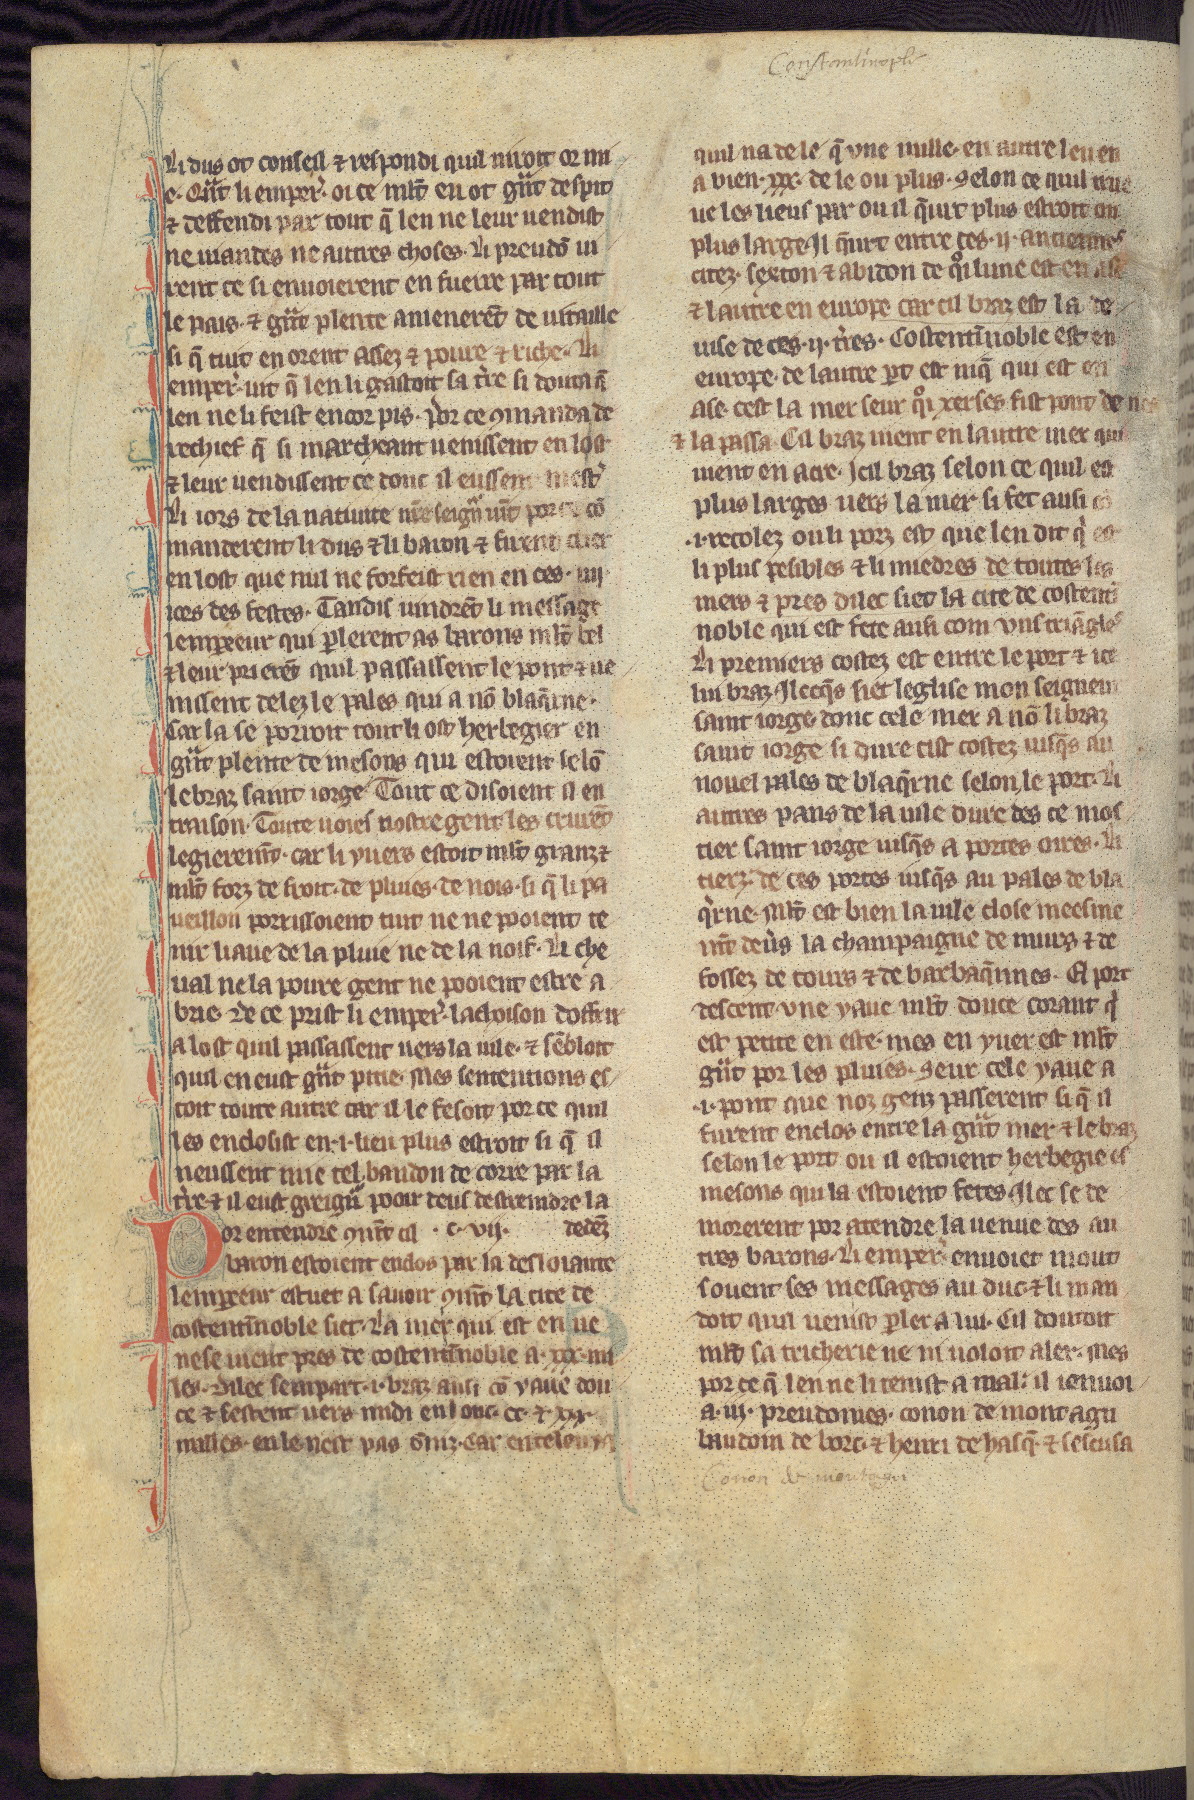 Constantinople
Li dus ot conseil ⁊ respondi quil niroit or mi
e. Qȧt li emper̉. oi ce ml̄t en ot gȧt despit
⁊ deffendi par tout q̄ len ne leur uendist
ne uiandes ne autres choses. Li preudō ui
rent ce si enuoierent en fuerre par tout
le pais. ⁊ gȧt plente amenerēt de uitaille
si q̄ tuit en orent assez ⁊ poure ⁊ riche. Li
emper̉. uit q̄ len li gastoit sa t̉re si douta q̄
len ne li feist encor pis. por ce ꝯmanda de
rechief q̄ si marcheant uenissent en lost
⁊ leur uendissent ce dont il eussent mest̉
Li iors de la natiuite nr̄e seign̄ uīt por ce cō
manderent li dus ⁊ li baron ⁊ firent crier
en lost que nul ne forfeist rien en ces. iiij
iors des festes. Tandis uindrēt li message
lempeeur qui ꝑlerent as barons ml̄t bel
⁊ leur prierēt quil passassent le pont ⁊ ue
nissent delez le pales qui a nō blaq̄rne.
Car la se porroit tout li ost herbegier en
gȧt plente de mesons qui estoient selō
le braz saint iorge Tout ce disoient il en
traison. Toute uoies nostre gent les crurēt
legieremēt. car li yuers estoit ml̄t granz ⁊
ml̄t forz de froit. de pluies. de nois. si q̄ li pa
ueillon porrissoient tuit ne ne pooient te
nir liaue de la pluie ne de la noif. Li che
ual ne la poure gent ne pooient estre a
brie. De ce prist li emper̉. lachoison doffrir
a lost quil passassent uers la uile. ⁊ sēbloit
quil en eust gȧt pitie. Mes sententions es
toit toute autre car il le fesoit por ce quil
les enclosist en .i. lieu plus estroit si q̄ il
neussent mie tel bandon de corre par la
t̉re ⁊ il eust greign̄ pooir deus destreindre la
Por entendre ꝯmēt cil .c. vij. dedēz
baron estoient enclos par la desloiaute
lempeeur estuet a sauoir ꝯmēt la cite de
costentinnoble siet. La mer qui est en ue
nese uient pres de costentinnoble a .xxx. mi
les. Dilec sempart .i. braz ausi cō yaue dou
ce ⁊ sestent uers midi en lonc. cc. ⁊ xxx.
milles. en le nest pas ōniz. Car en tel lou ya
quil na de le q̄ vne mille. en autre leu en
a bien .xxx. de le ou plus. Selon ce quil true
ue les lieus par ou il q̄urt plus estroit ou
plus large. Il q̄urt entre ces .ij. anciennes
citez. sexton ⁊ abidon de q̊i lune est en ase
⁊ lautre en europe car cil braz est la de
uise de ces .ij. t̉res. Costentinnoble est en
europe. de lautre ꝑt est niq̄ qui est en
ase. cest la mer seur q̊i xerses fist pont de nes
⁊ la passa. Cil braz uient en lautre mer qui
uient en acre. Icil braz selon ce quil est
plus larges uers la mer si fet ausi cō
.i. recolez ou li porz est que len dit q̇ est
li plus pesibles ⁊ li miedres de toutes les
mers ⁊ pres dilec siet la cite de costenti
noble qui est fete ausi com vns triāgles
Li premiers costez est entre le port ⁊ ice
lui braz. Ilecq̄s siet leglise mon seigneur
saint iorge. dont cele mer a nō li braz
saint iorge si dure cist costez iusq̄s au
nouel pales de blaq̄rne selon le port. Li
autres pans de la uile dure des ce mos
tier saint iorge iusq̄s a portes oires. Li
tierz de ces portes iusq̄s au pales de bla
q̄rne. Ml̄t est bien la uile close meesme
mēt deūs la champaigne de murs ⁊ de
fossez de tours ⁊ de barbaq̄nnes. El port
descent vne yaue ml̄t douce corant q̇
est petite en este. mes en yuer est ml̄t
gȧt por les pluies. Seur cele yaue a
.i. pont que noz genz passerent si q̄ il
furent enclos entre la gȧt mer ⁊ le braz
selon le port ou il estoient herbegie es
mesons qui la estoient fetes. Ilec se de
morerent por atendre la uenue des au
tres barons. Li emper̉ enuoiet mout
souent ses messages au duc ⁊ li man
doit quil uenist ꝑler a lui. Cil doutoit
ml̄t sa tricherie ne ni uoloit aler. Mes
por ce q̄ len ne li tenist a mal: il ienuoi
a .iij. preudomes. conon de montagu
baudoin de borc. ⁊ henri de hasq̄. ⁊ sescusa
Conon de montagu